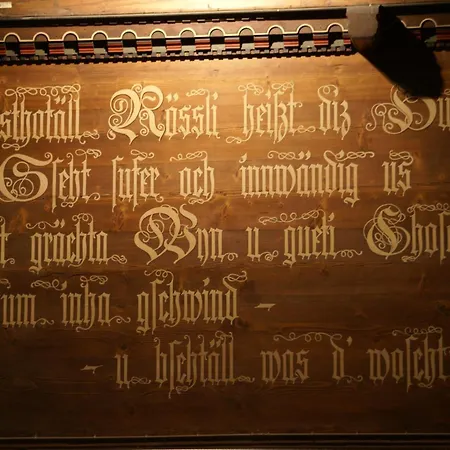 Rössli heißt diz
Gseht sufer och innwändig us
grächta Wyn u gueti
inha gschwind –
– u bschtäll was d' woscht